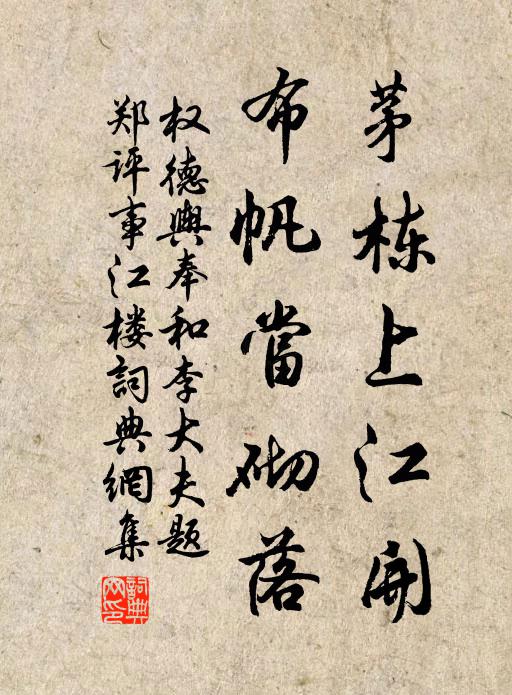 茅栋上江开
布帆當砌落
权德輿奉和李大夫题
郑评事江楼詞典網集
詞典網印